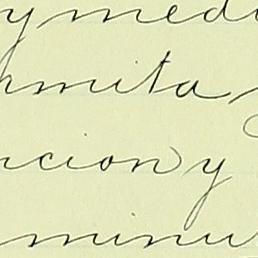 y medi
rmita y
ncion y
minu